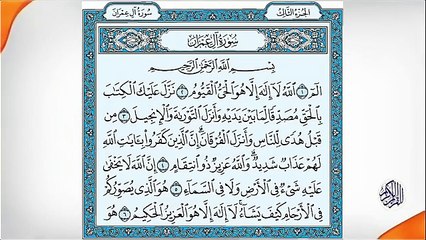 سُورَةُ آلِ عِمْرَانَ
الجُزْءُ الثَّالِثُ
سُورَةُ آلِ عِمْرَانَ
بِسْمِ اللَّهِ الرَّحْمَٰنِ الرَّحِيمِ
الٓمٓ ١ اللَّهُ لَا إِلَٰهَ إِلَّا هُوَ الْحَيُّ الْقَيُّومُ ٢ نَزَّلَ عَلَيْكَ الْكِتَٰبَ
بِالْحَقِّ مُصَدِّقًا لِّمَا بَيْنَ يَدَيْهِ وَأَنزَلَ التَّوْرَىٰةَ وَالْإِنجِيلَ ٣ مِن
قَبْلُ هُدًى لِّلنَّاسِ وَأَنزَلَ الْفُرْقَانَ إِنَّ الَّذِينَ كَفَرُوا بِـَٔايَٰتِ اللَّهِ
لَهُمْ عَذَابٌ شَدِيدٌ وَاللَّهُ عَزِيزٌ ذُو انتِقَامٍ ٤ إِنَّ اللَّهَ لَا يَخْفَىٰ
عَلَيْهِ شَيْءٌ فِي الْأَرْضِ وَلَا فِي السَّمَاءِ ٥ هُوَ الَّذِي يُصَوِّرُكُمْ
فِي الْأَرْحَامِ كَيْفَ يَشَاءُ لَا إِلَٰهَ إِلَّا هُوَ الْعَزِيزُ الْحَكِيمُ ٦ هُوَ
القرآن الكريم